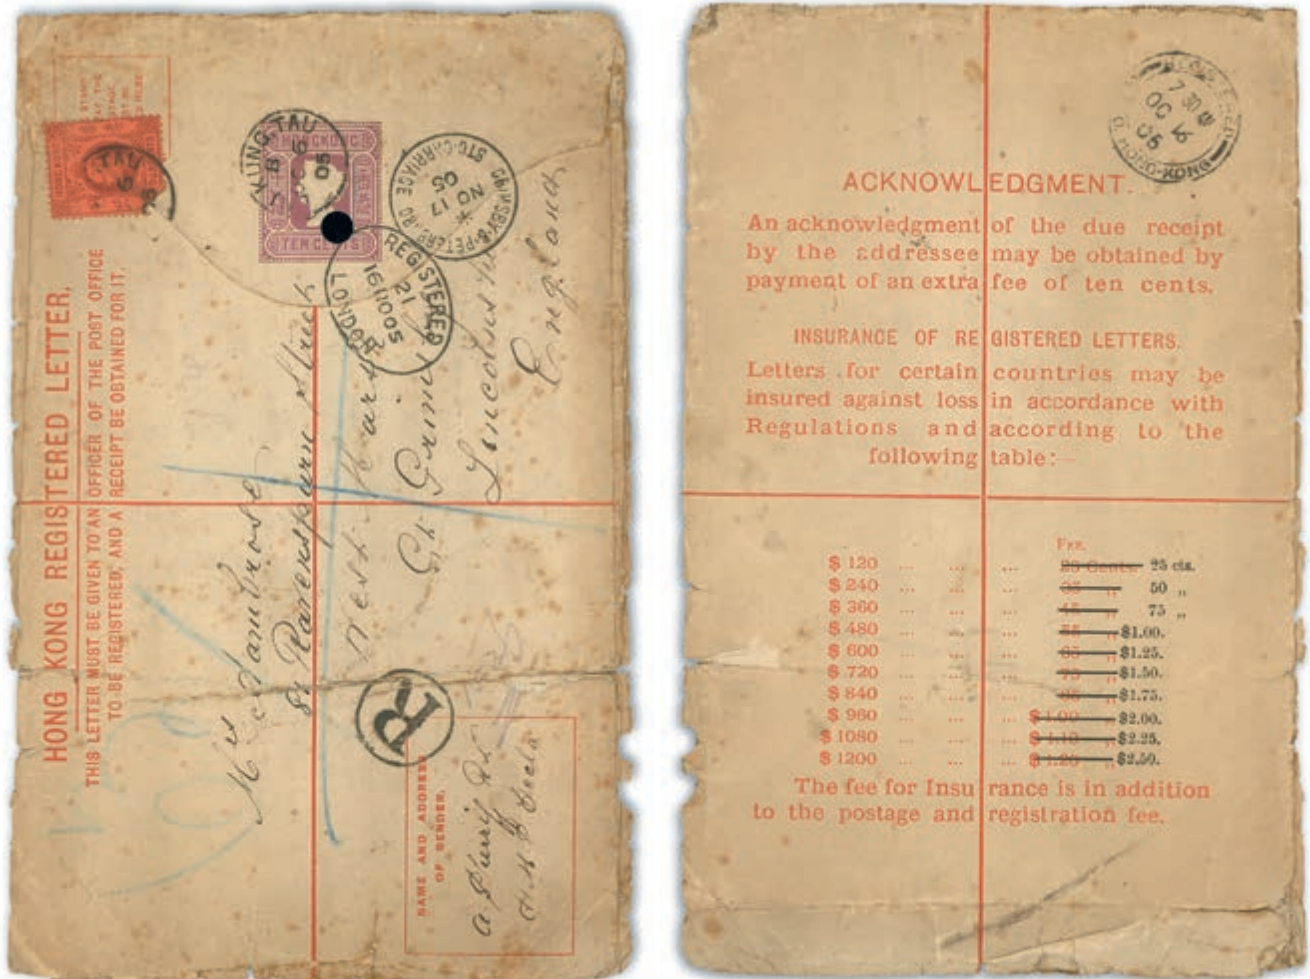 HONG KONG REGISTERED LETTER.
THIS LETTER MUST BE GIVEN TO AN OFFICER OF THE POST OFFICE
TO BE REGISTERED, AND A RECEIPT BE OBTAINED FOR IT.
TAU
6
HONGKONG
TEN CENTS
KUNG TAU
B
6
05
GRIMSBY & PETERBRO
STG CARRIAGE
NO 17
05
REGISTERED
21
16 NO 05
LONDON
Mrs Tambrose
82 Ravenspurn Street
West Marsh
Gt Grimsby
England
R
NAME AND ADDRESS
OF SENDER.
H.M.S.
REGISTERED
7 30 AM
OC 6
05
G. HONG-KONG
ACKNOWLEDGMENT.
An acknowledgment of the due receipt
by the addressee may be obtained by
payment of an extra fee of ten cents.
INSURANCE OF REGISTERED LETTERS.
Letters for certain countries may be
insured against loss in accordance with
Regulations and according to the
following table:—
FEE.
$ 120 ... ... ... 25 Cents. 25 cts.
$ 240 ... ... ... 35 „ 50 „
$ 360 ... ... ... 45 „ 75 „
$ 480 ... ... ... 55 „ $1.00.
$ 600 ... ... ... 65 „ $1.25.
$ 720 ... ... ... 75 „ $1.50.
$ 840 ... ... ... 85 „ $1.75.
$ 960 ... ... ... $ 1.00 $2.00.
$ 1080 ... ... ... $ 1.10 „ $2.25.
$ 1200 ... ... ... $ 1.20 „ $2.50.
The fee for Insurance is in addition
to the postage and registration fee.